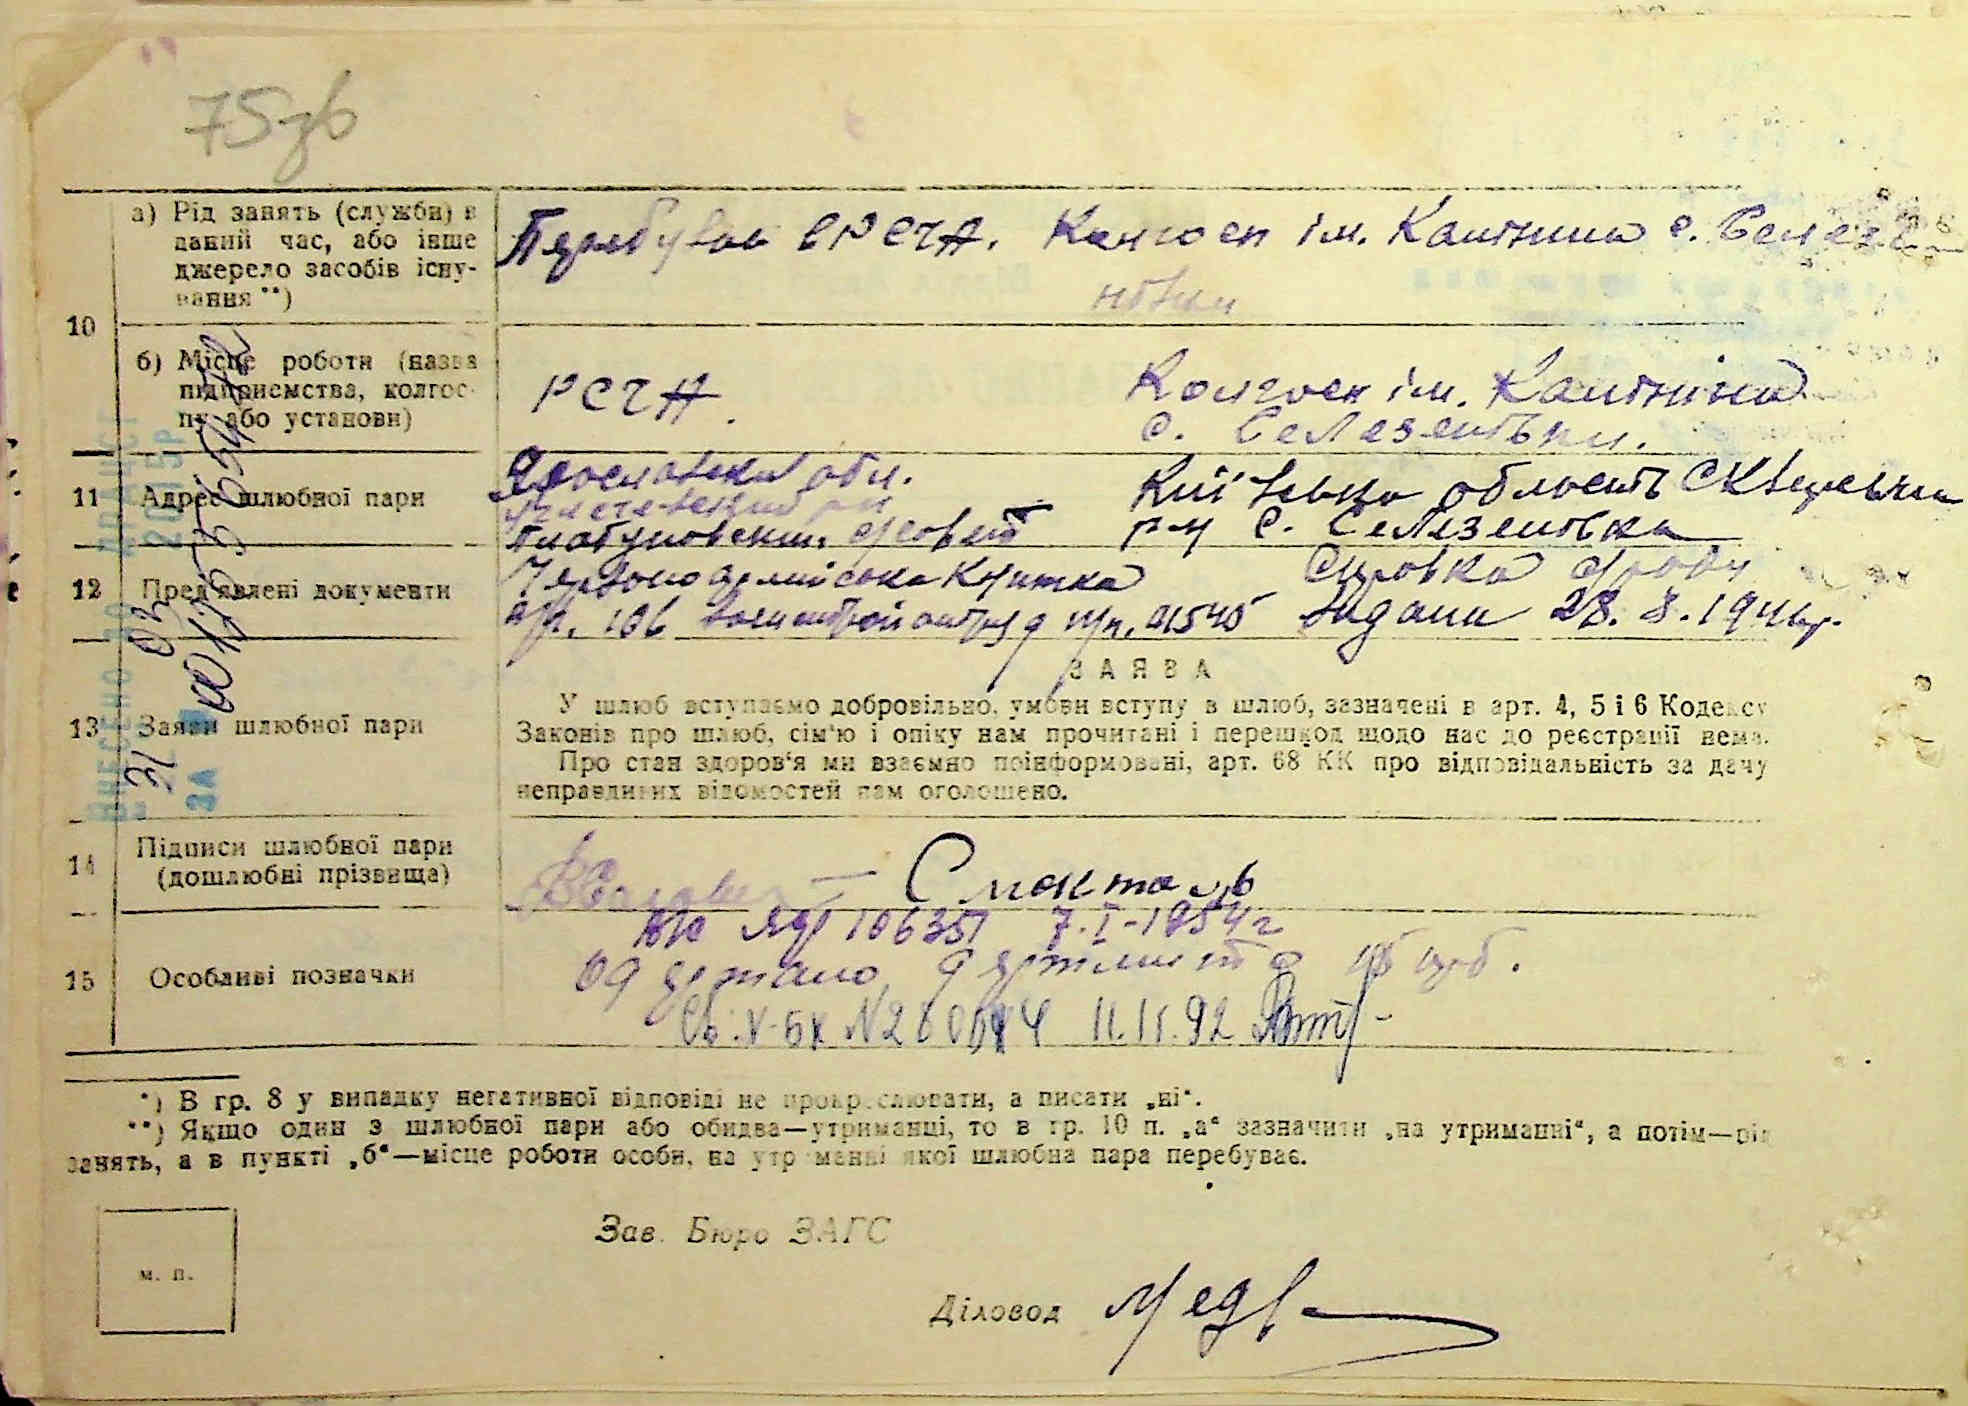 75зв
10
а) Рід занять (служби) в
даний час, або інше
джерело засобів існу-
вання **)
Перебував в РСЧА. Колгосп ім. Калініна с. Селезе-
нівки
б) Місце роботи (назва
підприємства, колгос-
пу або установи)
РСЧА.
Колгосп ім. Калініна
с. Селезенівки.
11
Адрес шлюбної пари
Ярославська обл.
совет
Київська область Сквирський
р-н с. Селезенівка
12
Пред'явлені документи
Червоноармійська книжка
106 п/п. 41545
Справка с/ради
видана 28. 8. 1946р.
13
Заяви шлюбної пари
ЗАЯВА
У шлюб вступаємо добровільно, умови вступу в шлюб, зазначені в арт. 4, 5 і 6 Кодексу
Законів про шлюб, сім'ю і опіку нам прочитані і перешкод щодо нас до реєстрації нема.
Про стан здоров'я ми взаємно поінформовані, арт. 68 КК про відповідальність за дачу
неправдивих відомостей нам оголошено.
14
Підписи шлюбної пари
(дошлюбні прізвища)
15
Особливі позначки
106351 7.I-1954г
11.11.92
*) В гр. 8 у випадку негативної відповіді не прокреслювати, а писати „ні“.
**) Якщо один з шлюбної пари або обидва—утриманці, то в гр. 10 п. „а“ зазначити „на утриманні“, а потім—рід
занять, а в пункті „б“—місце роботи особи, на утриманні якої шлюбна пара перебуває.
м. п.
Зав. Бюро ЗАГС
Діловод